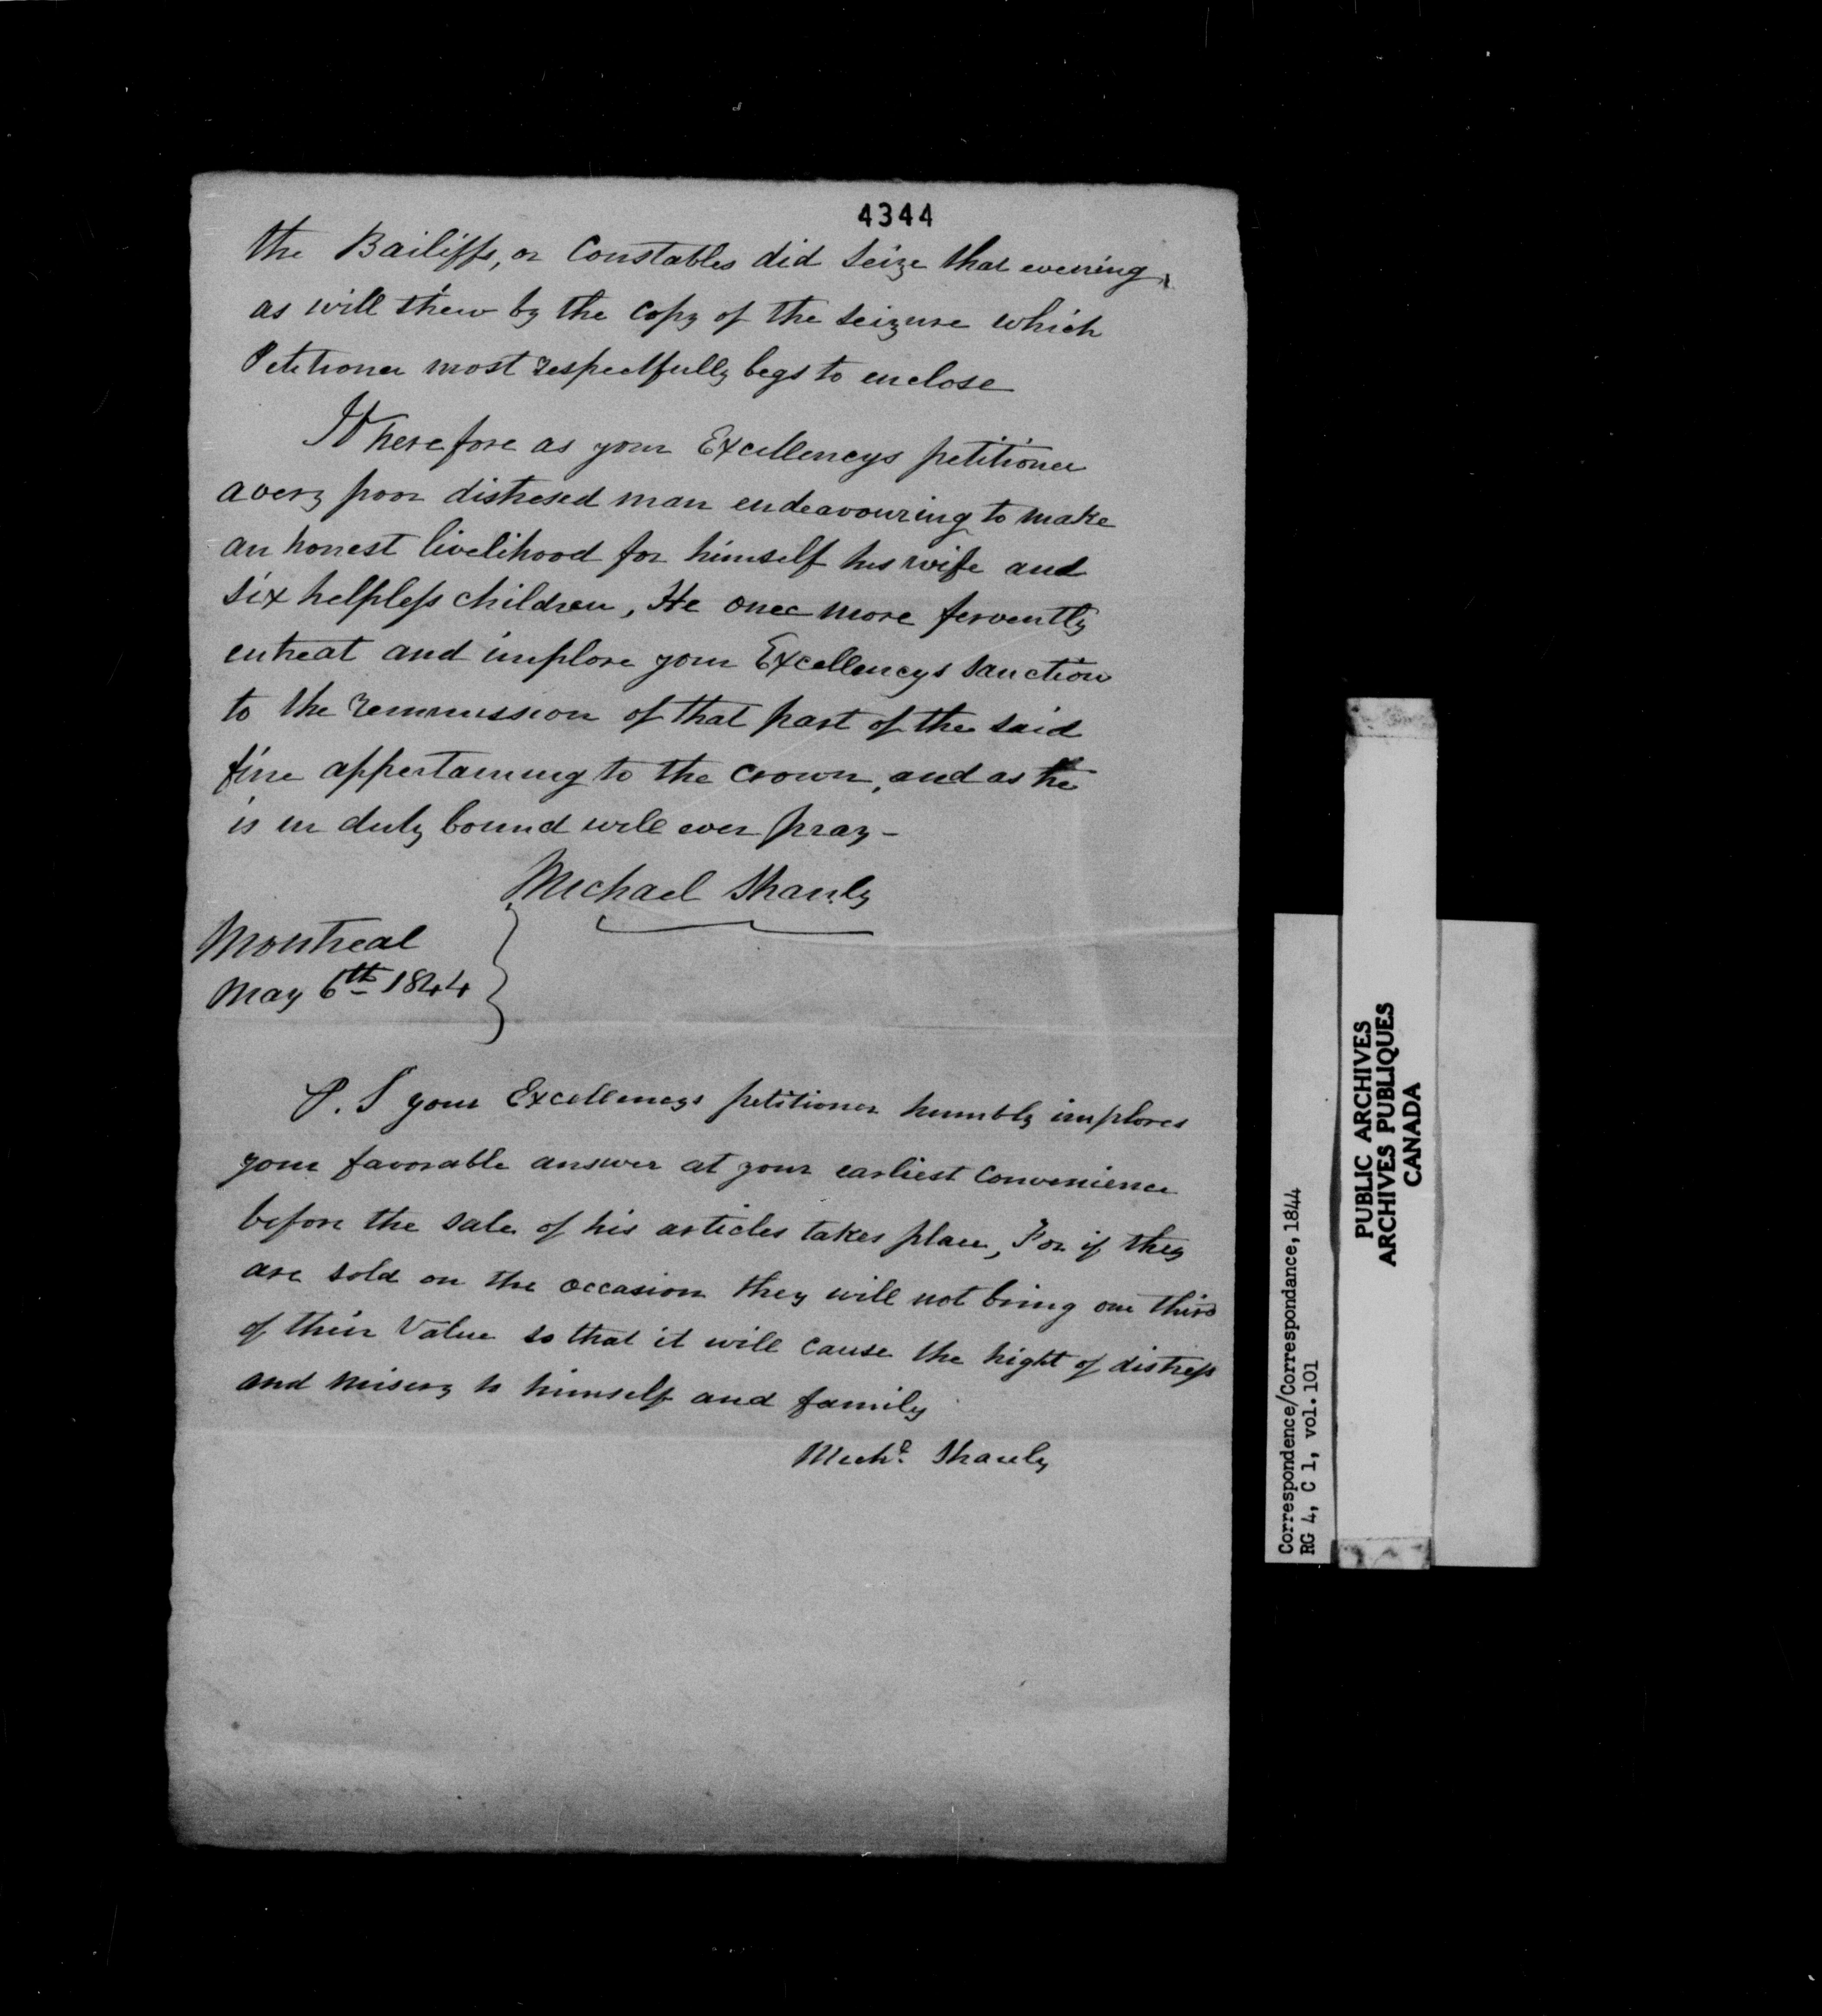 4344
the Bailiffs, or Constables did seize that evening,
as will shew by the copy of the seizure which
Petitioner most respectfully begs to enclose
Wherefore as your Excellencys petitioner
a very poor distresed man endeavouring to make
an honest livelihood for himself his wife and
six helpless children, He once more fervently
entreat and implore your Excellencys sanction
to the remmission of that part of the said
fine appertaining to the crown, and as he
is in duty bound will ever pray -
Michael Shanly
Montreal
May 6th 1844
P. S your Excellencys petitioner humbly implores
your favorable answer at your earliest convenience
before the sale of his articles takes place, For if they
are sold on the occasion they will not bring one third
of their value so that it will cause the hight of distress
and misery to himself and family
Michl. Shanly
Correspondence/Correspondance, 1844
RG 4, C 1, vol. 101
PUBLIC ARCHIVES
ARCHIVES PUBLIQUES
CANADA